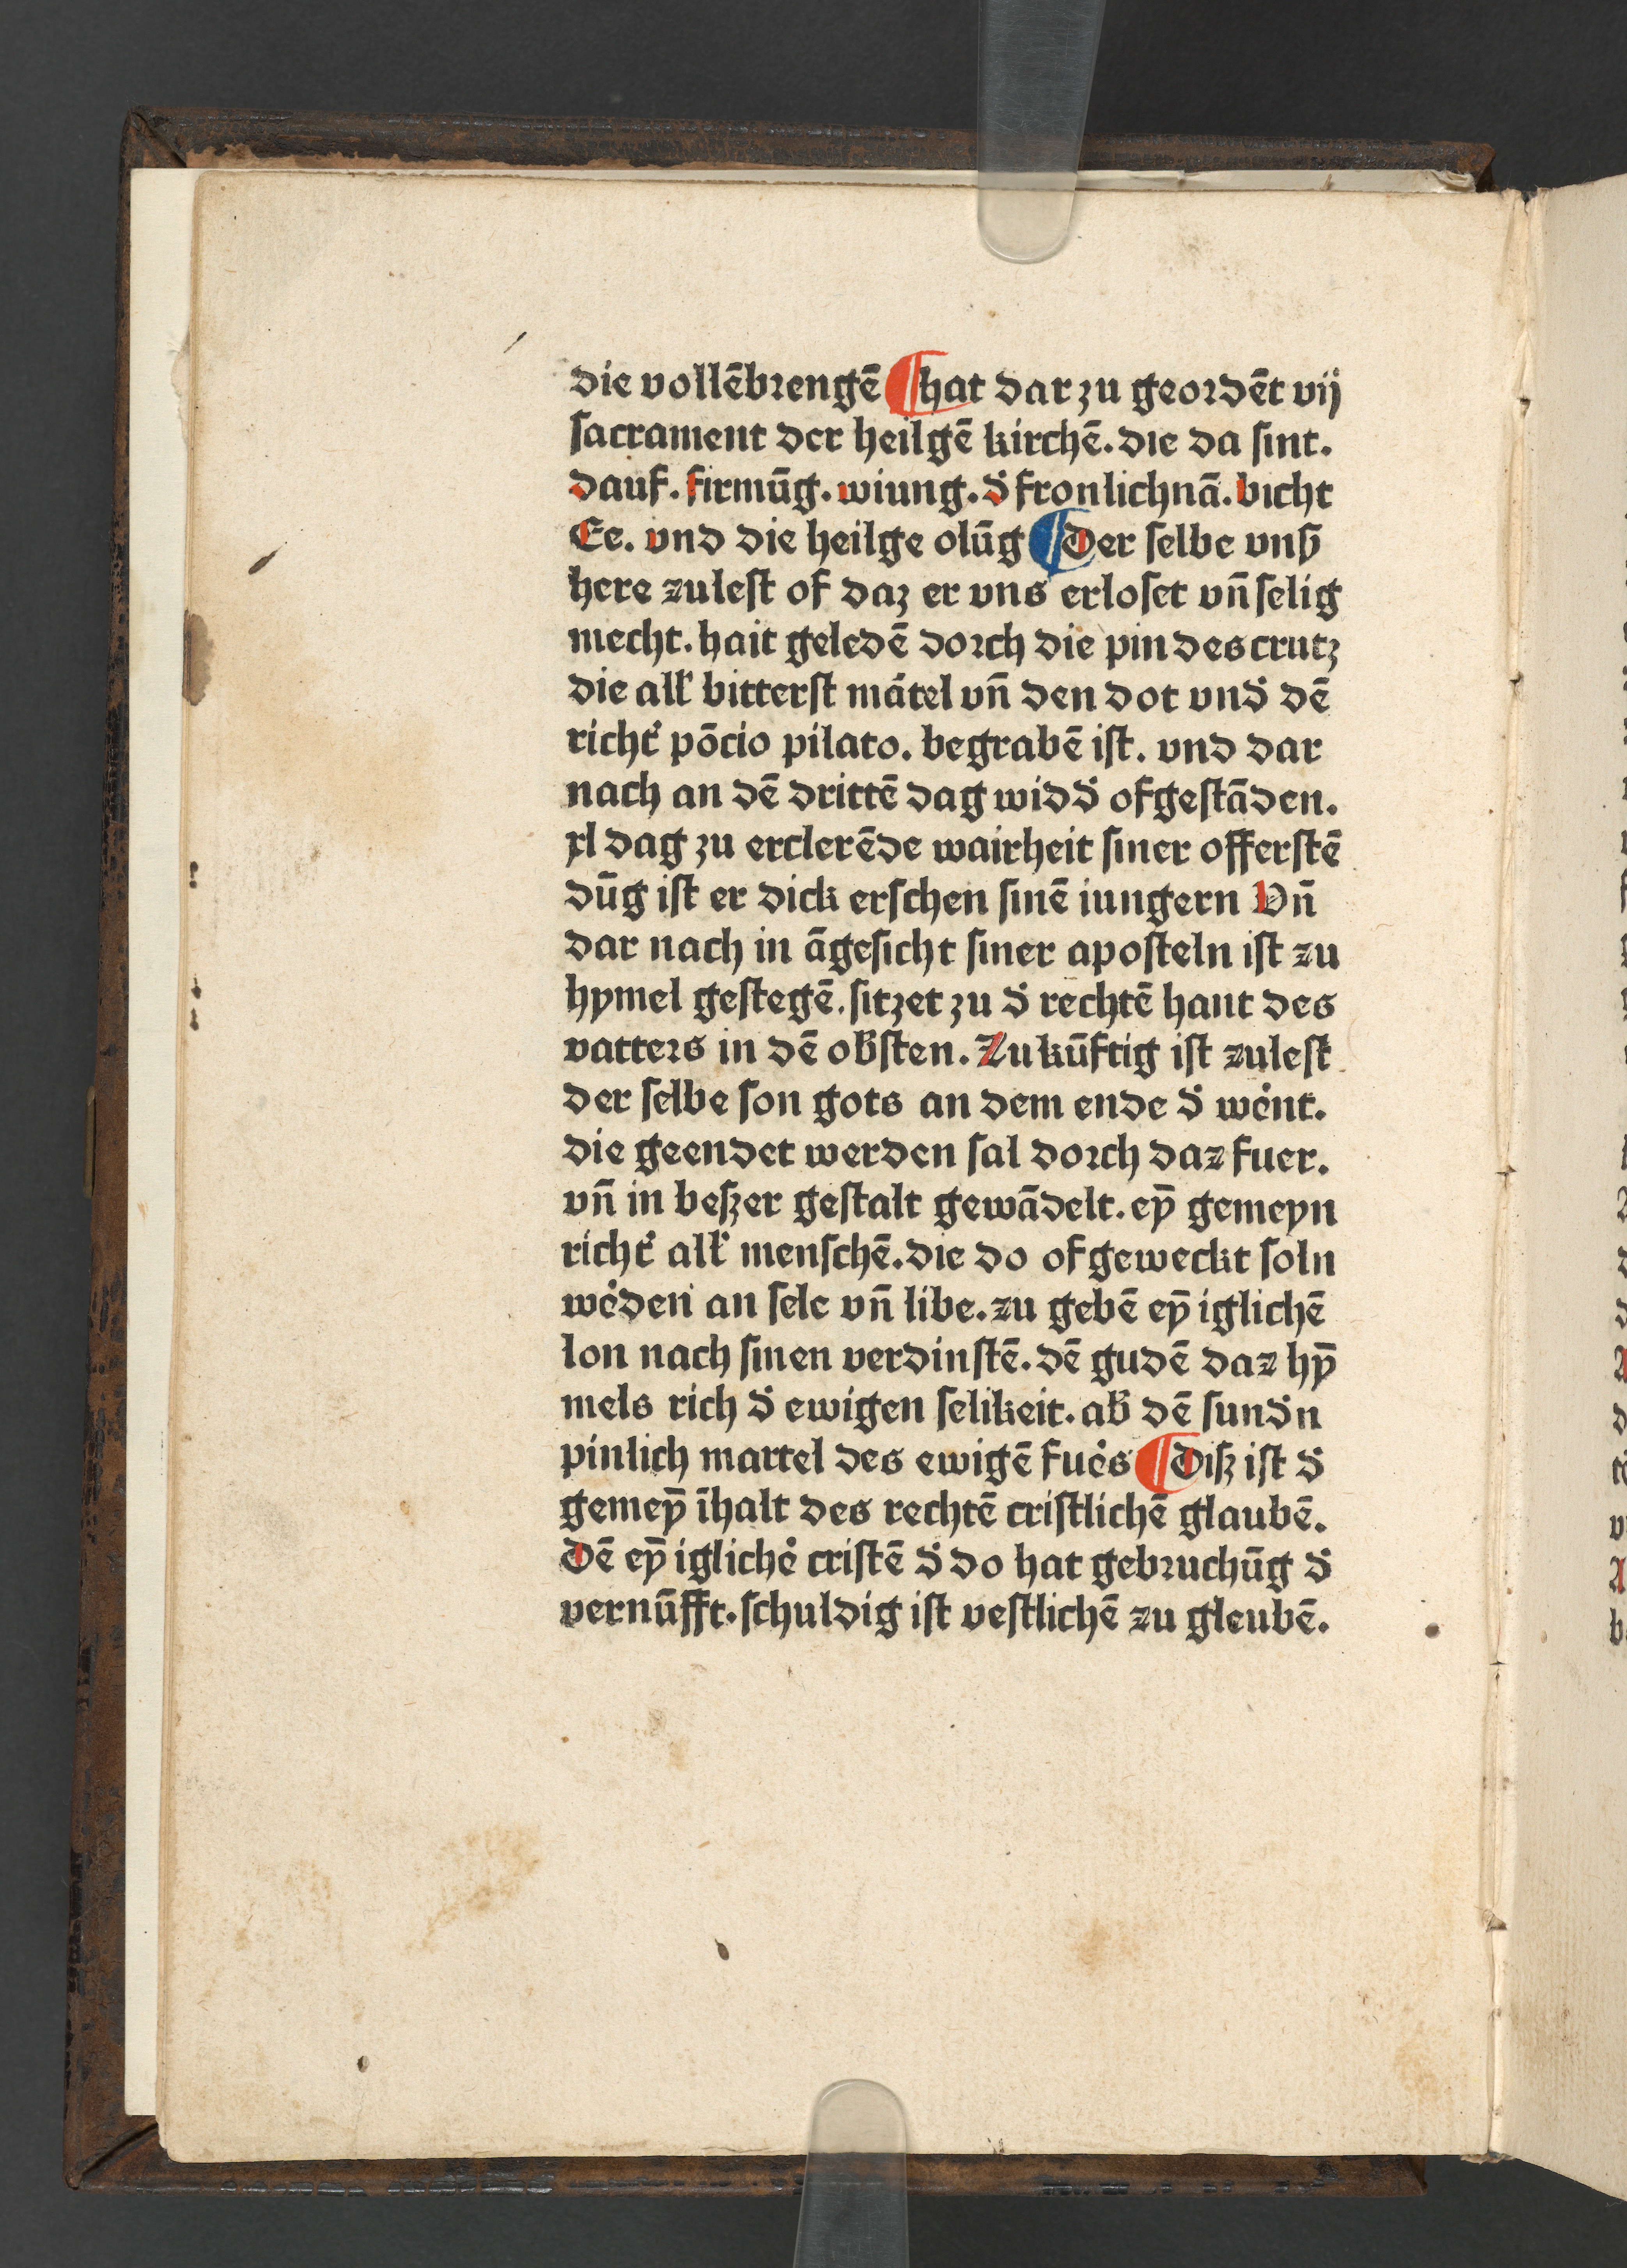 die vollēbꝛengē ¶ hat dar zu geoꝛdēt vij
ſacrament der heilgē kirchē. die da ſint.
dauf. firmūg. wiung. d̓ fronlichnā. bicht
Ee. vnd die heilge olūg ¶ Der ſelbe vnſ̓
here zuleſt of daz er vns erloſet vn̄ ſelig
mecht. hait geledē doꝛch die pin des crutz
die all̓ bitterſt mątel vn̄ den dot vnd̓ dē
richt̓ pōcio pilato. begrabē iſt. vnd dar
nach an dē drittē dag widd̓ ofgeſtāden.
xl dag zu erclerēde wairheit ſiner offerſtē
dūg iſt er dick erſchen ſinē iungern Vn̄
dar nach in āgeſicht ſiner apoſteln iſt zu
hymel geſtegē. ſitzet zu d̓ rechtē hant des
vatteꝛs in dē ob̓ſten. Zukūftig iſt zuleſt
der ſelbe ſon gots an dem ende d̓ we̓nt.
die geendet werden ſal doꝛch daz fuer.
vn̄ in beſzer geſtalt gewādelt. eȳ gemeyn
richt̓ all̓ menſchē. die do ofgeweckt ſoln
we̓den an ſele vn̄ libe. zu gebē eȳ iglichē
lon nach ſinen verdinſtē. dē gudē daz hȳ
mels rich d̓ ewigen ſelikeit. ab̓ dē ſund̓n
pinlich martel des ewigē fue̓s ¶ Diſz iſt d̓
gemeȳ īhalt des rechtē criſtlichē glaubē.
Dē eȳ igliche̓ criſtē d̓ do hat gebꝛuchūg d̓
vernūfft. ſchuldig iſt veſtlichē zu gleubē.